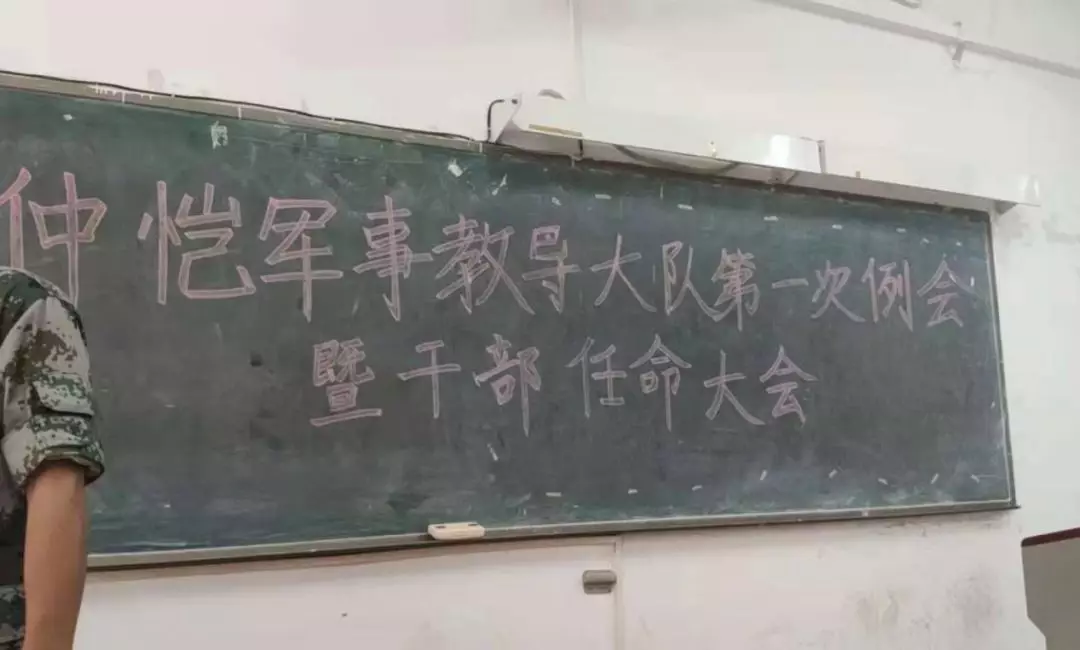 仲恺军事教导大队第一次例会
暨干部任命大会